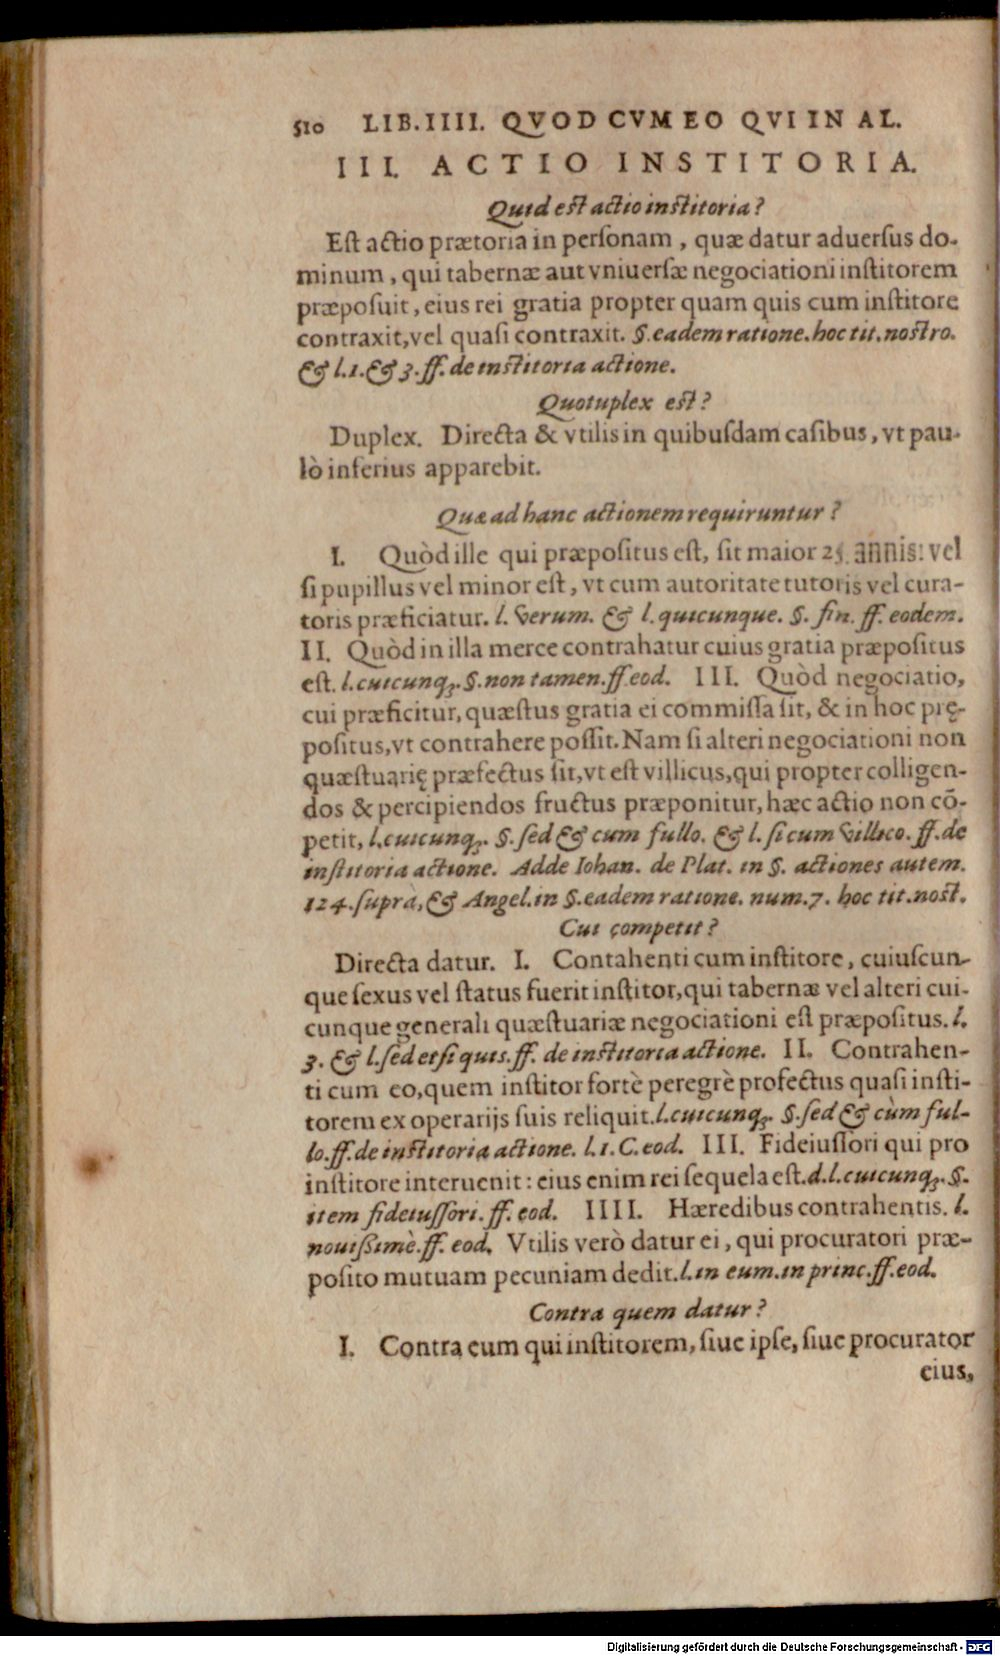 510 LIB. IIII. QVOD CVM EO QVI IN AL.
III. ACTIO INSTITORIA.
Quid est actio institoria?
Est actio prætoria in personam, quæ datur aduersus do-
minum, qui tabernæ aut vniuersæ negociationi institorem
præposuit, eius rei gratia propter quam quis cum institore
contraxit, vel quasi contraxit. §. eadem ratione. hoc tit. nostro.
& l. 1. & 3. ff. de institoria actione.
Quotuplex est?
Duplex. Directa & vtilis in quibusdam casibus, vt pau-
lò inferius apparebit.
Quæ ad hanc actionem requiruntur?
I. Quòd ille qui præpositus est, sit maior 25. annis: vel
si pupillus vel minor est, vt cum autoritate tutoris vel cura-
toris præficiatur. l. Verum. & l. quicunque. §. fin. ff. eodem.
II. Quòd in illa merce contrahatur cuius gratia præpositus
est. l. cuicunq;. §. non tamen. ff. eod. III. Quòd negociatio,
cui præficitur, quæstus gratia ei commissa sit, & in hoc prę-
positus, vt contrahere possit. Nam si alteri negociationi non
quæstuarię præfectus sit, vt est villicus, qui propter colligen-
dos & percipiendos fructus præponitur, hæc actio non cō-
petit, l. cuicunq;. §. sed & cum fullo. & l. si cum Villico. ff. de
institoria actione. Adde Iohan. de Plat. in §. actiones autem.
124. suprà, & Angel. in §. eadem ratione. num. 7. hoc tit. nost.
Cui competit?
Directa datur. I. Contahenti cum institore, cuiuscun-
que sexus vel status fuerit institor, qui tabernæ vel alteri cui-
cunque generali quæstuariæ negociationi est præpositus. l.
3. & l. sed etsi quis. ff. de institoria actione. II. Contrahen-
ti cum eo, quem institor fortè peregrè profectus quasi insti-
torem ex operarijs suis reliquit. l. cuicunq;. §. sed & cùm ful-
lo. ff. de institoria actione. l. 1. C. eod. III. Fideiussori qui pro
institore interuenit: eius enim rei sequela est. d. l. cuicunq;. §.
item fideiussori. ff. eod. IIII. Hæredibus contrahentis. l.
nouißimè. ff. eod. Vtilis verò datur ei, qui procuratori præ-
posito mutuam pecuniam dedit. l. in eum. in princ. ff. eod.
Contra quem datur?
I. Contra eum qui institorem, siue ipse, siue procurator
eius,
Digitalisierung gefördert durch die Deutsche Forschungsgemeinschaft - DFG